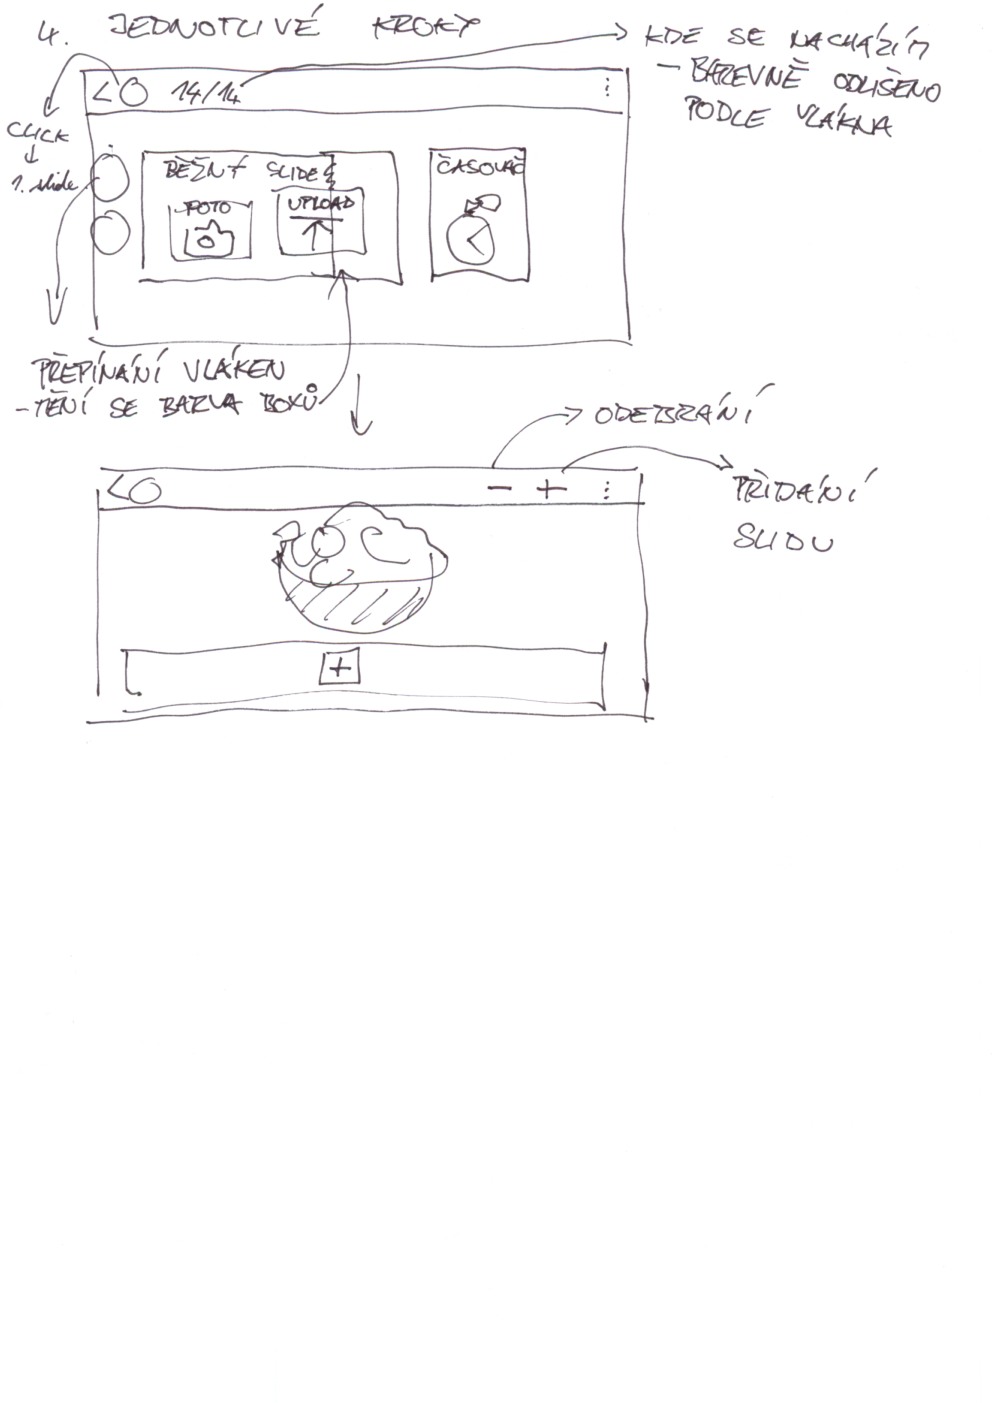 4. JEDNOTLIVÉ KROKY
KDE SE NACHÁZÍM
- BAREVNĚ ODLIŠENO
PODLE VLÁKNA
< 14/14 ⋮
CLICK
↓
1. slide
BĚŽNÝ SLIDE
FOTO
UPLOAD
ČASOVAČ
PŘEPÍNÁNÍ VLÁKEN
- MĚNÍ SE BARVA BOXŮ
ODEBRÁNÍ
< - + ⋮
PŘIDÁNÍ
SLIDU
+